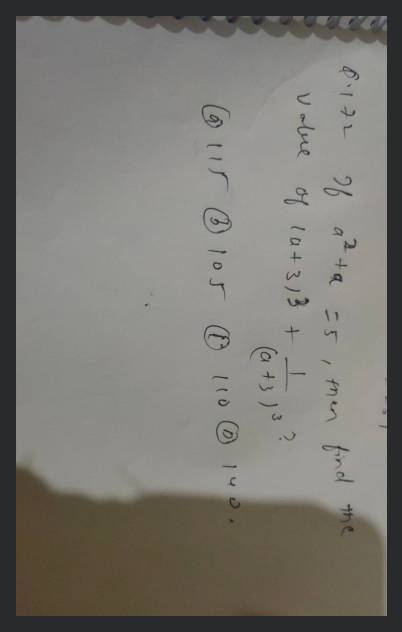 Q.172 If a²+a = 5, then find the
value of (a+3)³ + 1/(a+3)³ ?
(a) 115 (b) 105 (c) 110 (d) 140.